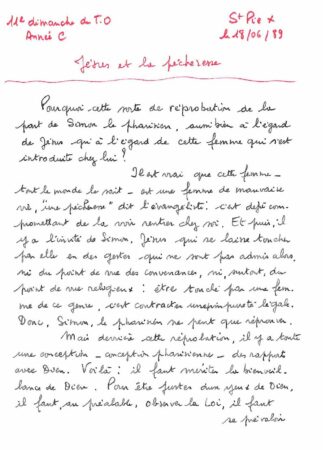 11e dimanche du T.O
Année C
St Pie X
le 18/06/89
Jésus et la pécheresse
Pourquoi cette sorte de réprobation de la
part de Simon le pharisien, aussi bien à l'égard
de Jésus qu'à l'égard de cette femme qui s'est
introduite chez lui?
Il est vrai que cette femme -
tout le monde le sait - est une femme de mauvaise
vie, "une pécheresse" dit l'évangéliste: c'est déjà com-
promettant de la voir rentrer chez soi. Et puis, il
y a l'invité de Simon, Jésus qui se laisse toucher
par elle en des gestes qui ne sont pas admis alors,
ni du point de vue des convenances, ni, surtout, du
point de vue religieux: être touché par une fem-
me de ce genre, c'est contracter une impureté légale.
Donc, Simon, le pharisien ne peut que réprouver.
Mais derrière cette réprobation, il y a toute
une conception - conception pharisienne - des rapports
avec Dieu. Voilà: il faut mériter la bienveil-
lance de Dieu. Pour être justes aux yeux de Dieu,
il faut, au préalable, observer la Loi, il faut
se prévaloir